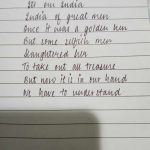 It's our India
India of great men
Once it was a golden hen
But some selfish men
Slaughtered her
To take out all treasure
But now it is in our hand
We have to understand